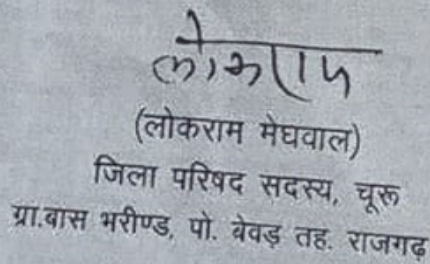 लोकराम
(लोकराम मेघवाल)
जिला परिषद सदस्य, चूरू
ग्रा.बास भरीण्ड, पो. बेवड़ तह. राजगढ़